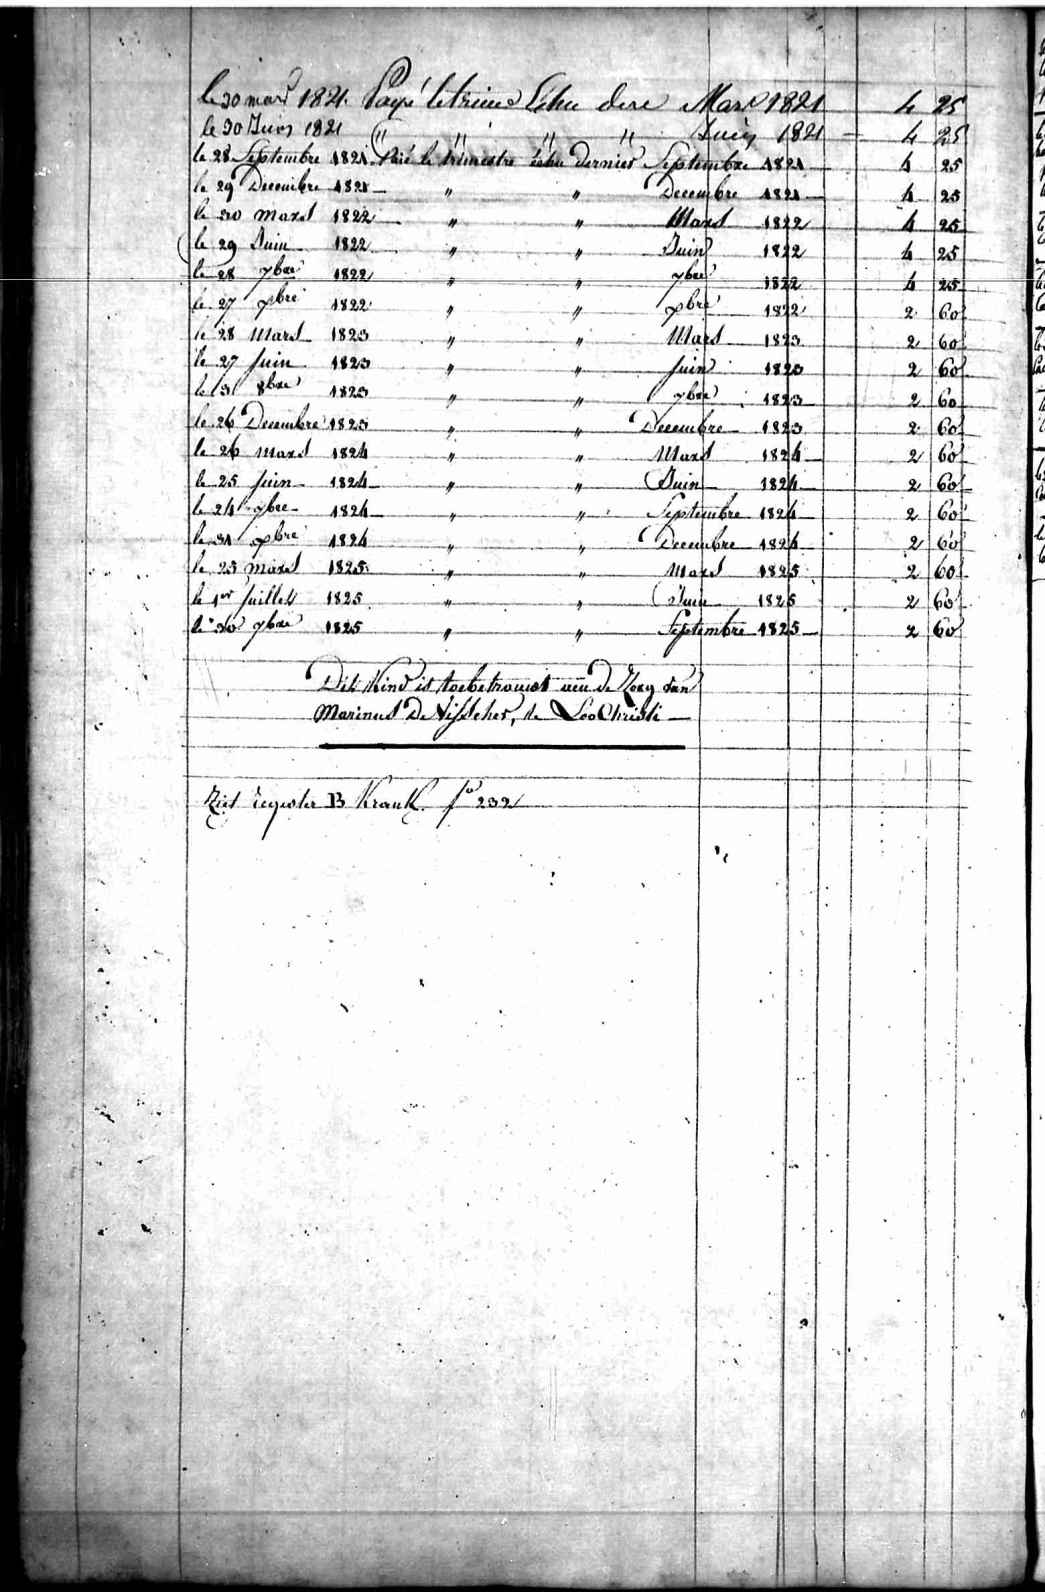 le 30 mars 1821. Payé le trime Echu dere Mars 1821 4 25
le 30 Juin 1821 " " " " Juin 1821 4 25
le 28 Septembre 1821 Paié le trimestre échu dernier Septembre 1821 4 25
le 29 Decembre 1821 " " Decembre 1821 4 25
le 30 mars 1822 " " Mars 1822 4 25
le 29 Juin 1822 " " Juin 1822 4 25
le 28 7bre 1822 " " 7bre 1822 4 25
le 27 Xbre 1822 " " Xbre 1822 2 60
le 28 Mars 1823 " " Mars 1823 2 60
le 27 Juin 1823 " " Juin 1823 2 60
le 3 8bre 1823 " " 7bre 1823 2 60
le 26 Decembre 1823 " " Decembre 1823 2 60
le 26 mars 1824 " " Mars 1824 2 60
le 25 Juin 1824 " " Juin 1824 2 60
le 24 7bre 1824 " " Septembre 1824 2 60
le 31 Xbre 1824 " " Decembre 1824 2 60
le 25 mars 1825 " " Mars 1825 2 60
le 1er Juillet 1825 " " Juin 1825 2 60
le 30 7bre 1825 " " Septembre 1825 2 60
Dit Kind is toebetrouwt aen De Zorg van
Marinus De Visscher, te Loochristi
Ziet register B Krank. fo 232